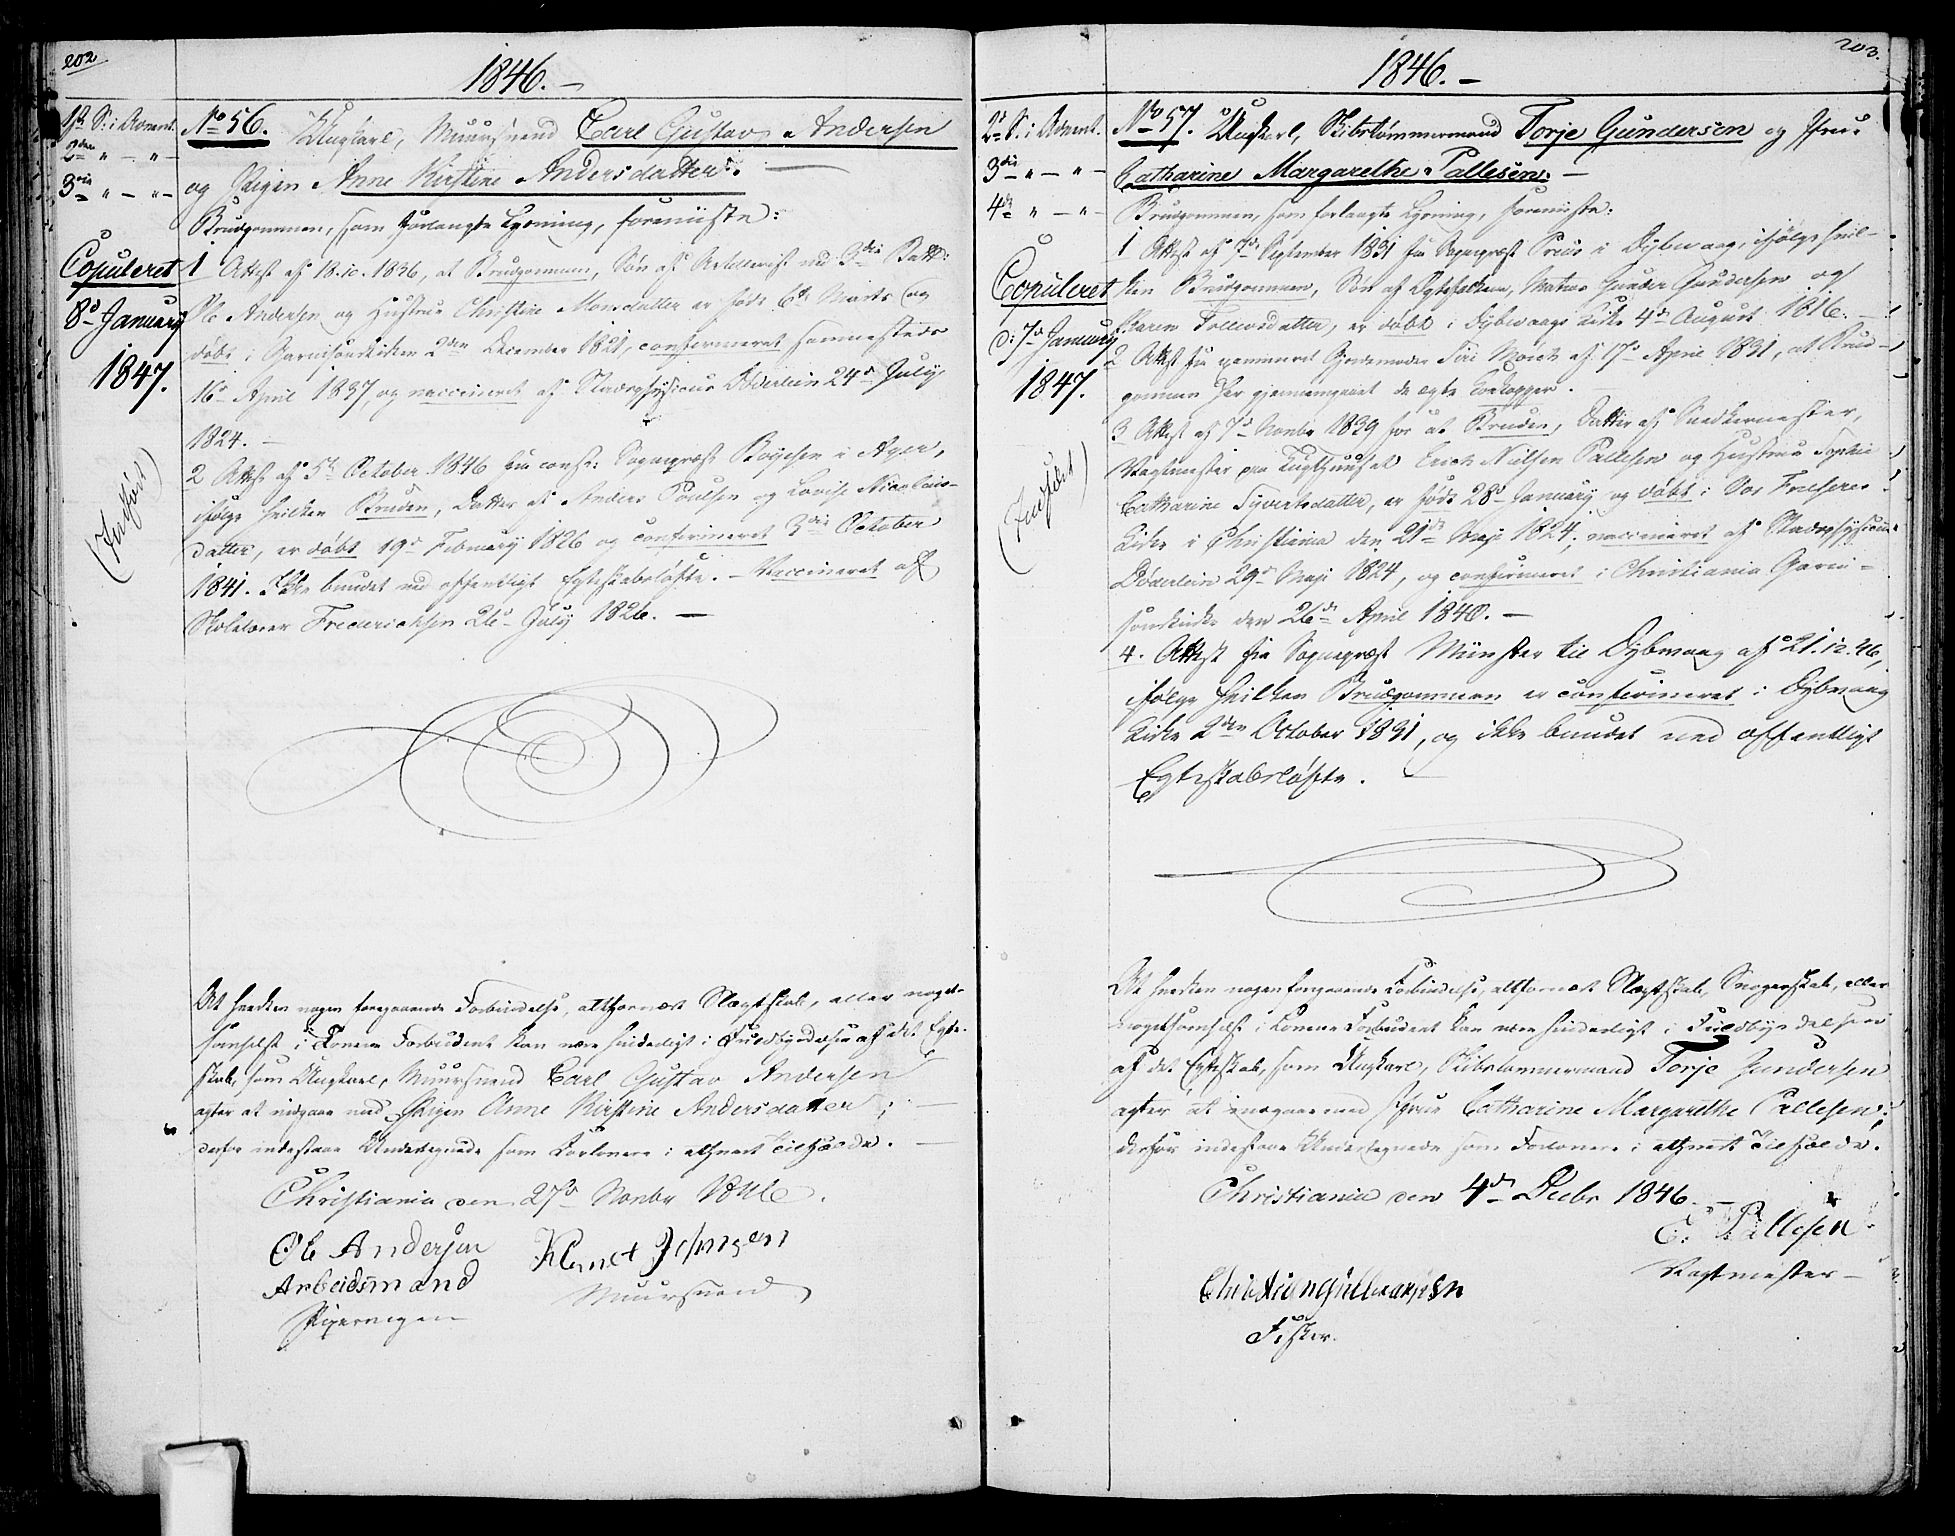 202
1846.-
1ste S: i Advent.
2den " — " —
3die " — " —
Copuleret
8de January
1847.
(Indført)
No 56. Ungkarl, Muursvend Carl Gustav Andersen
og Pigen Anne Kirstine Andersdatter. —
Brudgommen, som forlangte Lysning, foreviiste:
1 Attest af 18.10.1836, at Brudgommen, Søn af Artillerist ved 3die Batt:
Ole Andersen og Hustrue Christine Monsdatter er født 6te Marts og
døbt i Garnisonskirken 2den December 1821, confirmeret sammesteds
16de April 1837, og vaccineret af Stadsphysicus Døderlein 24de July
1824. —
2 Attest af 5te October 1846 fra const: Sognepræst Boyesen i Ager,
ifølge hvilken Bruden, Datter af Anders Poulsen og Lovise Nicolais-
datter, er døbt 19de February 1826 og confirmeret 3die October
1841. Ikke bundet ved offentligt Egteskabsløfte. – Vaccineret af
Skolelærer Frederichsen 26de July 1826. —
At hverken nogen foregaaende Forbindelse, altfornært Slægtskab, eller noget-
somhelst i Loven Forbudent kan være hinderligt i Fuldbyrdelsen af det Egte-
skab, som Ungkarl, Muursvend Carl Gustav Andersen
agter at indgaae med Pigen Anne Kirstine Andersdatter;
derfor indestaae Undertegnede som Forlovere i ethvert Tilfælde. —
Christiania den 27de Novbr 1846.
Ole Andersen
Arbeidsmand
Pipervigen
Muursvend
203.
1846.-
2den S: i Advent.
3die " — " —
4de " — " —
Copuleret
d: 7de January
1847.
(Indført)
No 57. Ungkarl, Skibstømmermand Torje Gundersen og Pfru:
Catharine Margarethe Pallesen. —
Brudgommen, som forlangte Lysning, foreviiste:
1 Attest af 7de September 1831 fra Sognepræst Preus i Dybevaag, ifølge hvil-
ken Brudgommen, Søn af Gunder Gundersen og
Karen Tollevsdatter, er døbt i Dybevaags Kirke 4de August 1816. —
2 Attest fra examineret Gjordemoder Siri Mørch af 17de April 1831, at Brud-
gommen har gjennemgaaet de egte Kokopper. —
3 Attest af 7de Novbr 1839 for at Bruden, Datter af Snedkermester,
Vagtmester paa Tugthuuset Erich Nielsen Pallesen og Hustrue Sophie
Cathrine Syvertsdatter, er født 28de January og døbt i Vor Frelseres
Kirke i Christiania den 21de Maji 1824, vaccineret af Stadsphysicus
Døderlein 29de Maji 1824, og confirmeret i Christiania Garni-
sonskirke den 26de April 1840. —
4. Attest fra Sognepræst Münster til Dybevaag af 21.12.46,
ifølge hvilken Brudgommen er confirmeret i Dybevaag
Kirke 2den October 1831, og ikke bundet ved offentligt
Egteskabsløfte. —
At hverken nogen foregaaende Forbindelse, altfornært Slægtskab, Svogerskab, eller
nogetsomhelst i Loven Forbudent kan være hinderligt i Fuldbyrdelsen
af det Egteskab, som Ungkarl, Skibstømmermand Torje Gundersen
agter at indgaae med Pfrue Catharine Margarethe Pallesen;
derfor indestaae Undertegnede som Forlovere i ethvert Tilfælde.
Christiania den 4de Decbr 1846. —
E. Pallesen
Vagtmester —
Fisker.